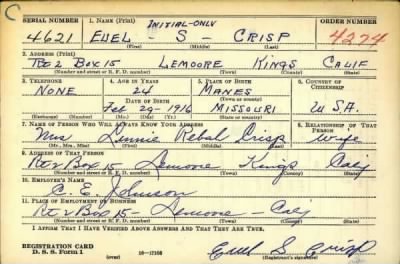 C
SERIAL NUMBER 1. NAME (Print) ORDER NUMBER
INITIAL-ONLY
4621 EUEL - S - CRISP 4274
(First) (Middle) (Last)
2. ADDRESS (Print)
Rt 2 BOX 15 LEMOORE KINGS CALIF
(Number and street or R. F. D. number) (Town) (County) (State)
3. TELEPHONE 4. AGE IN YEARS 5. PLACE OF BIRTH 6. COUNTRY OF CITIZENSHIP
NONE 24 MANES
DATE OF BIRTH (Town or county)
Feb 29-1916 MISSOURI U.S.A.
(Exchange) (Number) (Mo.) (Day) (Yr.) (State or country)
7. NAME OF PERSON WHO WILL ALWAYS KNOW YOUR ADDRESS 8. RELATIONSHIP OF THAT PERSON
Mrs Rebal Crisp Wife
(Mr., Mrs., Miss) (First) (Middle) (Last)
9. ADDRESS OF THAT PERSON
Rt 2 Box 15 - Lemoore Kings Calif
(Number and street or R. F. D. number) (Town) (County) (State)
10. EMPLOYER'S NAME
C. E. Johnson
11. PLACE OF EMPLOYMENT OR BUSINESS
Rt 2 Box 15 - Lemoore - Calif
(Number and street or R. F. D. number) (Town) (County) (State)
I AFFIRM THAT I HAVE VERIFIED ABOVE ANSWERS AND THAT THEY ARE TRUE.
REGISTRATION CARD
D. S. S. Form 1 (over) 16-17105 Euel S Crisp
(Registrant's signature)